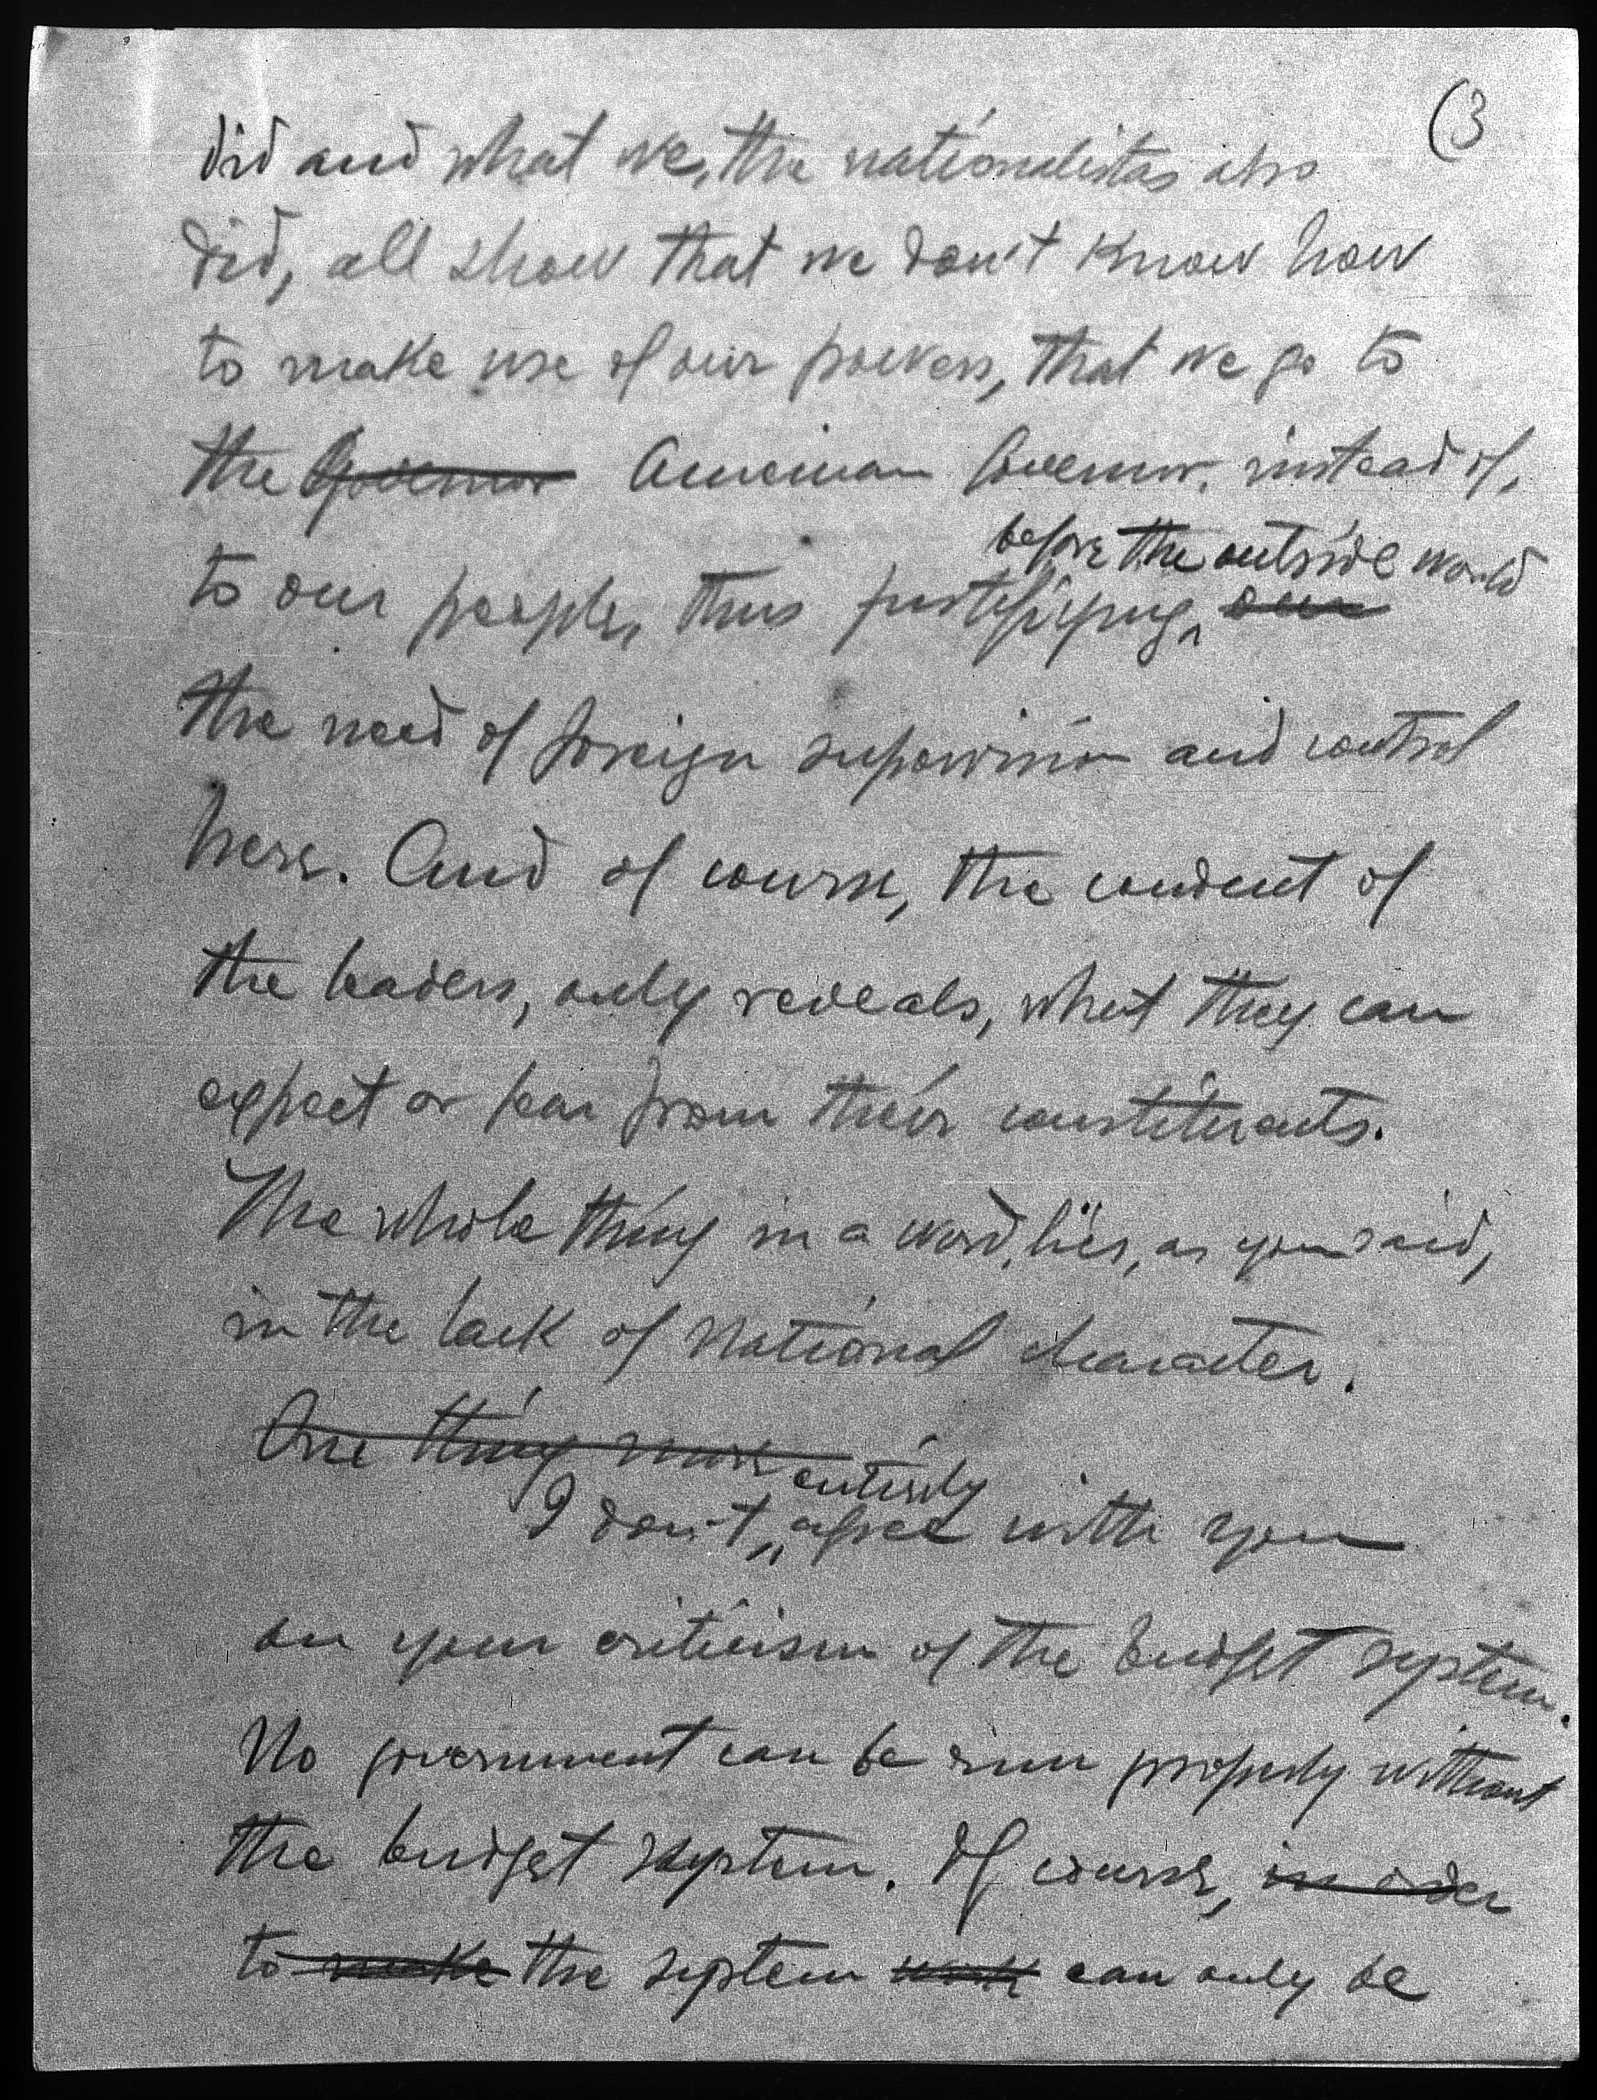 (3
did and what we, the nationalistas also
did, all show that we don't know how
to make use of our powers, that we go to
the Governor American Governor, instead of,
before the outside world
to our people, thus justifying our
the need of foreign supervision and control
here. And of course, the conduct of
the leaders, only reveals, what they can
expect or fear from their constituents.
The whole thing in a word, lies, as you said,
in the lack of national character.
One thing more
entirely
I don't agree with you
on your criticism of the budget system.
No government can be run properly without
the budget system. Of course, in order
to make the system work can only be